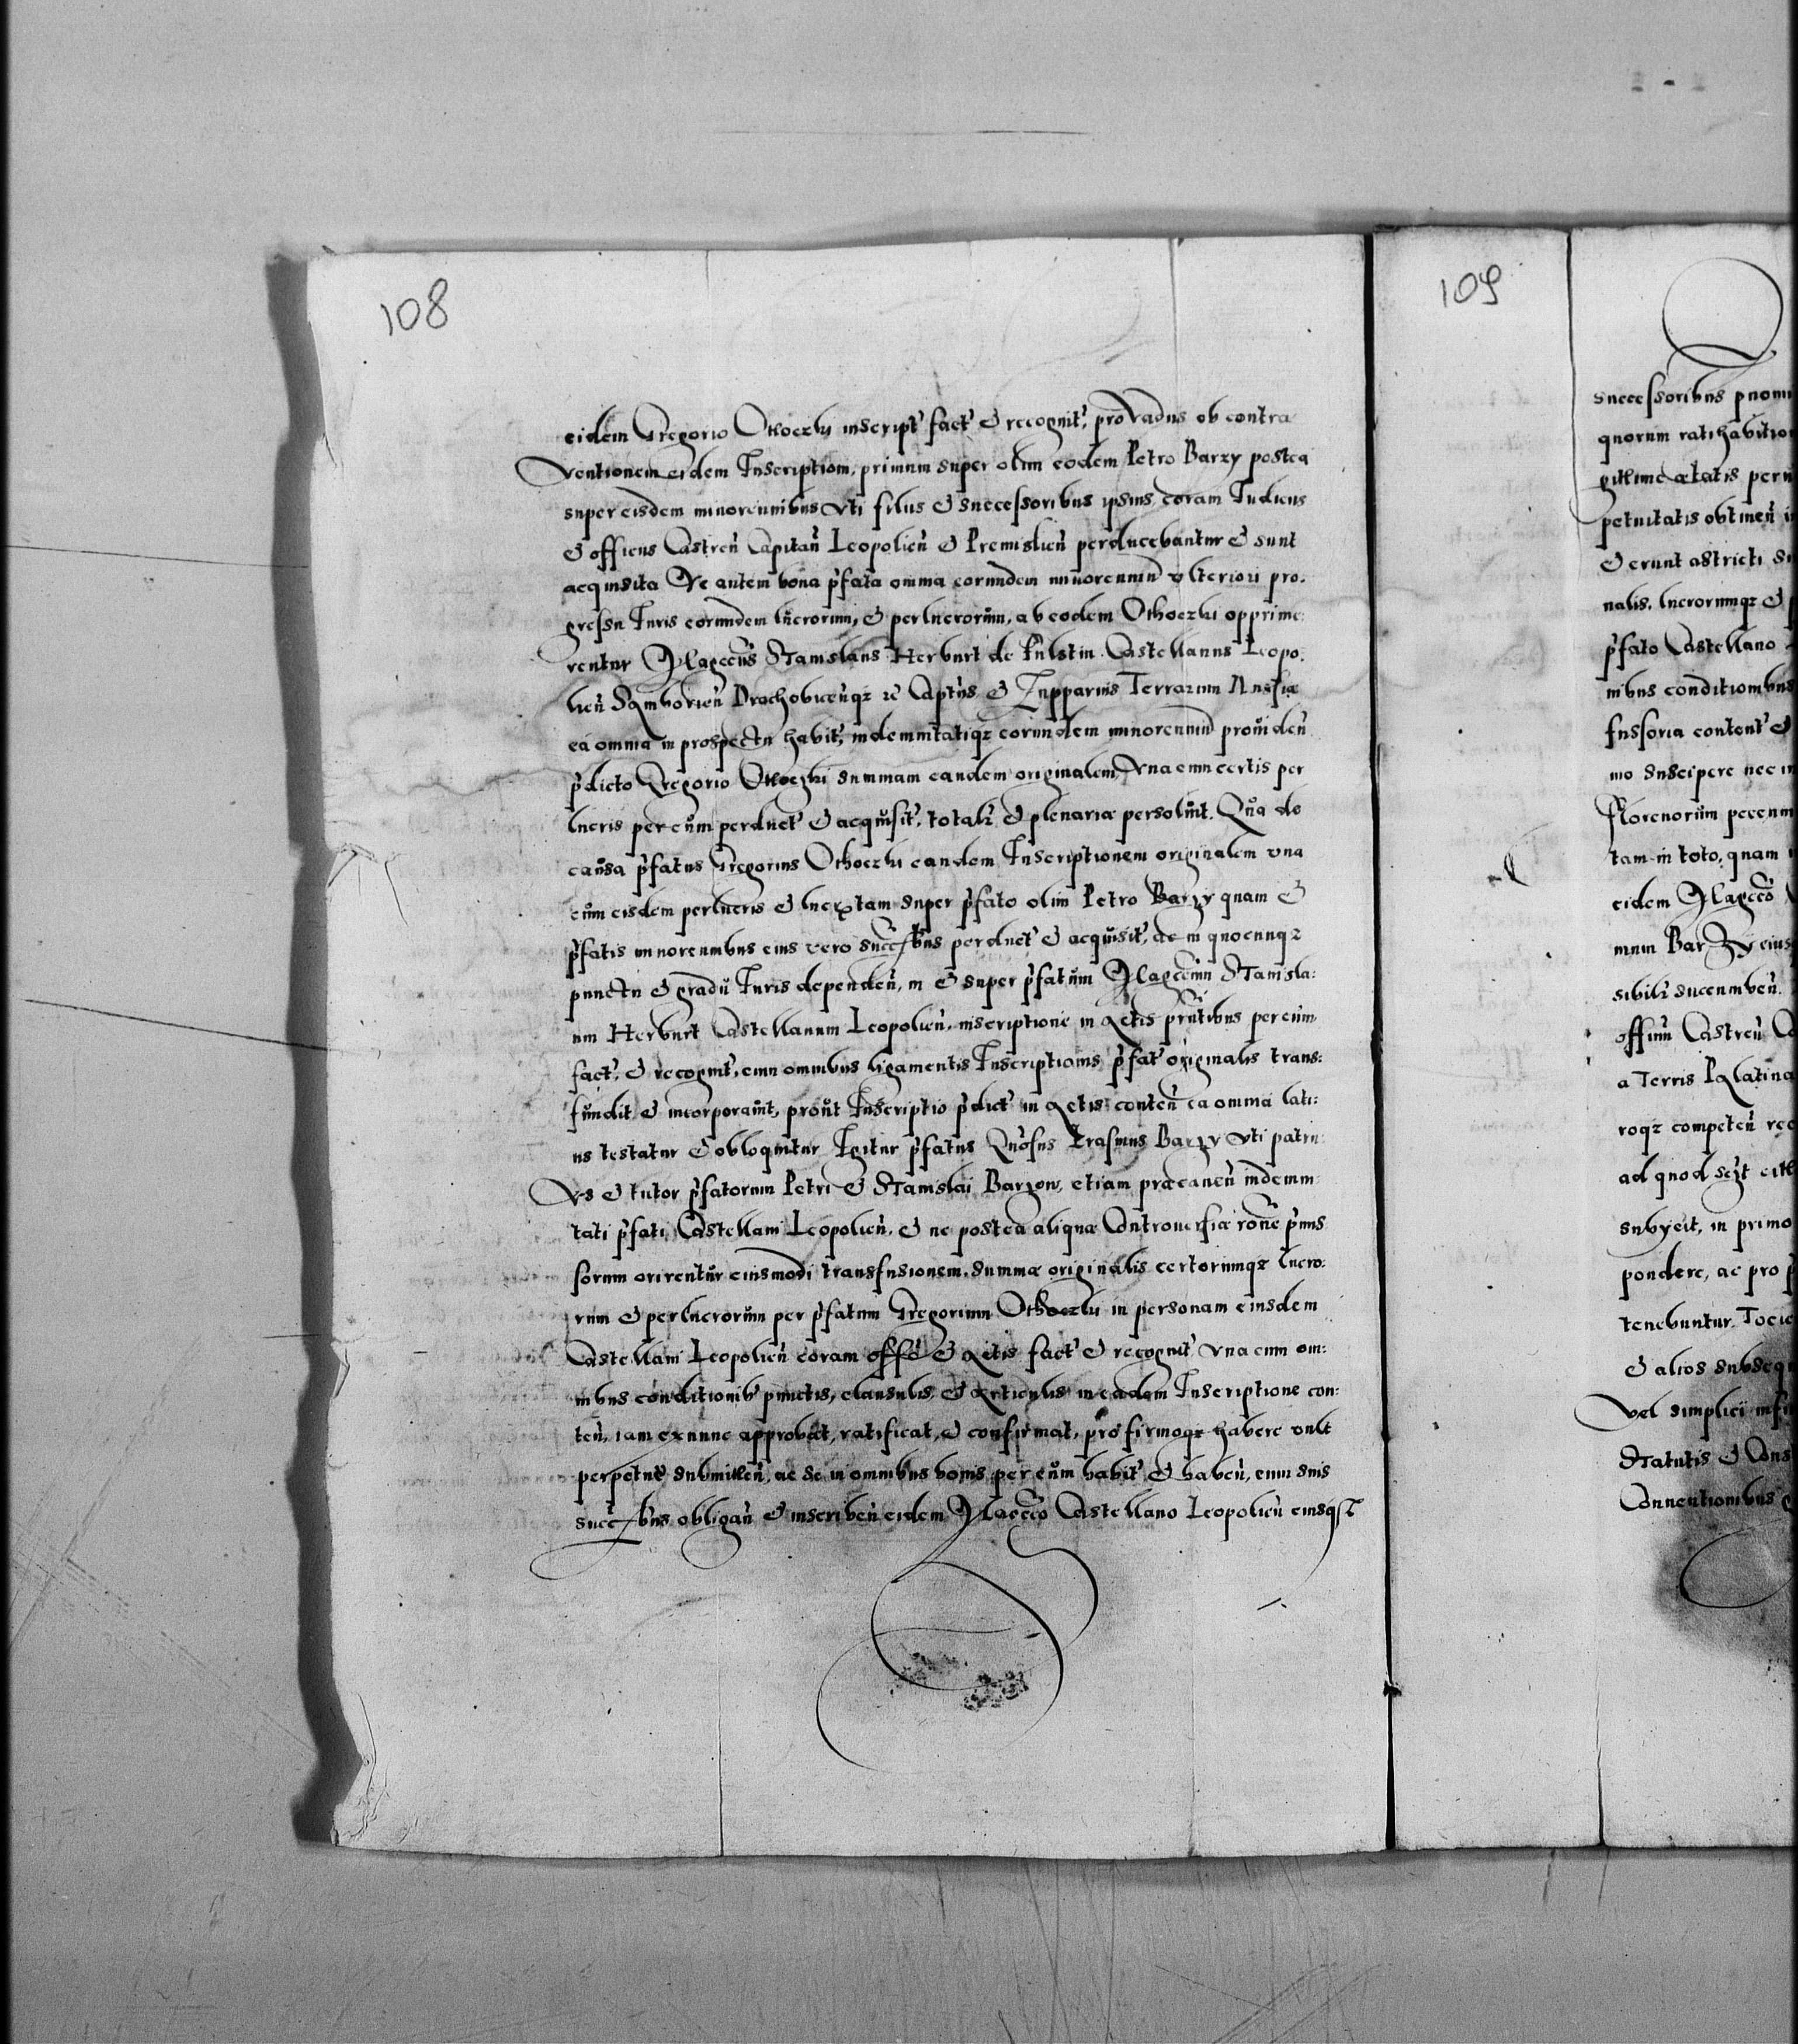 108
eidem Gregorio Othoezki inscript fact & recognit, pro Vadiis ob contra
ventionem eidem Inscriptioni, primum super olim eodem Petro Barzy postea
super eisdem minorennibus vti filiis & successoribus ipsius, coram Iudiciis
& officiis Castren Capitan Leopolien & Premislien perducebantur & sunt
acquisita Ne autem bona pfata omnia eorundem minorennium vlteriori pro:
gressu Iuris eorundem lucrorum, & perlucrorum, ab eodem Othoezki opprime
rentur Magccus Stanislaus Herburt de Fulstin Castellanus Leopo:
lien Samborien Drochobicenqz zc Captus & Zupparius Terrarum Russiæ
ea omnia in prospectu habit, indemnitatiqz eorundem minorennium prouiden
pdicto Gregorio Othoezki summam eandem originalem, vna cum certis per
lucris per eum perduct & acquisit, totalr & plenariæ persoluit. Qua de
causa pfatus Gregorius Othoezki eandem Inscriptionem originalem vna
cum eisdem perlucris & lucr tam super pfato olim Petro Barzy quam &
pfatis minorennibus eius vero succbus perduct & acquisit, ac in quocunqz
punctu & gradu Iuris dependen, in & super pfatum Magccum Stanisla:
um Herburt Castellanum Leopolien, inscriptione in Actis pntibus per eum
fact, & recognit, cum omnibus ligamentis Inscriptionis pfat originalis trans:
fundit & incorporauit, prout Inscriptio pdict in Actis conten ea omnia lati:
us testatur & obloquitur Igitur pfatus Gnosus Erasmus Barzy vti patru
us & tutor pfatorum Petri & Stanislai Barzow, etiam præcauen indemni
tati pfati Castellani Leopolien, & ne postea aliquæ Controuersiæ rone pmis
sorum orirentur eiusmodi transfusionem summæ originalis certorumqz lucro:
rum & perlucrorum per pfatum Gregorium Othoezki in personam eiusdem
Castellani Leopolien coram offo & Actis fact & recognit vna cum om:
nibus conditionib punctis, clausulis, & Articulis in eadem Inscriptione con:
ten, iam ex nunc approbat, ratificat, & confirmat, pro firmoqz habere vult
perpetue submitten, ac se in omnibus bonis per eum habit & haben, cum suis
succbus obligan & inscriben eidem Magcco Castellano Leopolien eiusqz
109
successoribus
quorum ratihabition
gittimæ ætatis
petuitatis obtinen
& erunt astricti
nalis, lucrorumqz &
pfato Castellano
nibus conditionibus
fusoria content &
mo suscipere nec
Florenorum
tam in toto, quam
eidem Magcco
mum Barzy eius
sibilr sucumben.
offium Castren
a Terris Palatina
roqz competen
ad quod
subyeit, in primo
pondere, ac pro
tenebuntur. Tocie
& alios subseq
vel simplici
Statutis & Cons
Conuentionibus